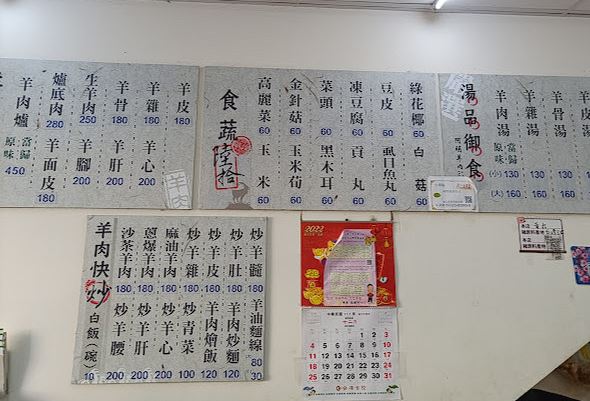 羊肉爐 原味 當歸 450
爐底肉 280
羊面皮 180
生羊肉 250
羊腳 200
羊骨 180
羊肝 200
羊雜 180
羊心 200
羊皮 180
食蔬 陸拾
高麗菜 60
玉米 60
金針菇 60
玉米筍 60
菜頭 60
黑木耳 60
凍豆腐 60
貢丸 60
豆皮 60
虱目魚丸 60
綠花椰 60
白菇 60
湯品御食
羊肉湯 原味 當歸 (小) 130 (大) 160
羊雜湯 130 160
羊骨湯 130 160
羊皮
羊肉快炒
白飯(碗) 10
沙茶羊肉 180
炒羊腰 200
蔥爆羊肉 180
炒羊肝 200
麻油羊肉 180
炒羊心 200
炒羊雜 180
炒青菜 100
炒羊皮 180
羊肉燴飯 120
炒羊肚 180
羊肉炒麵 120
炒羊髓 180
羊油麵線 80 30
2022
4 5 6 7 8 9 10
11 12 13 14 15 16 17
18 19 20 21 22 23 24
25 26 27 28 29 30 31